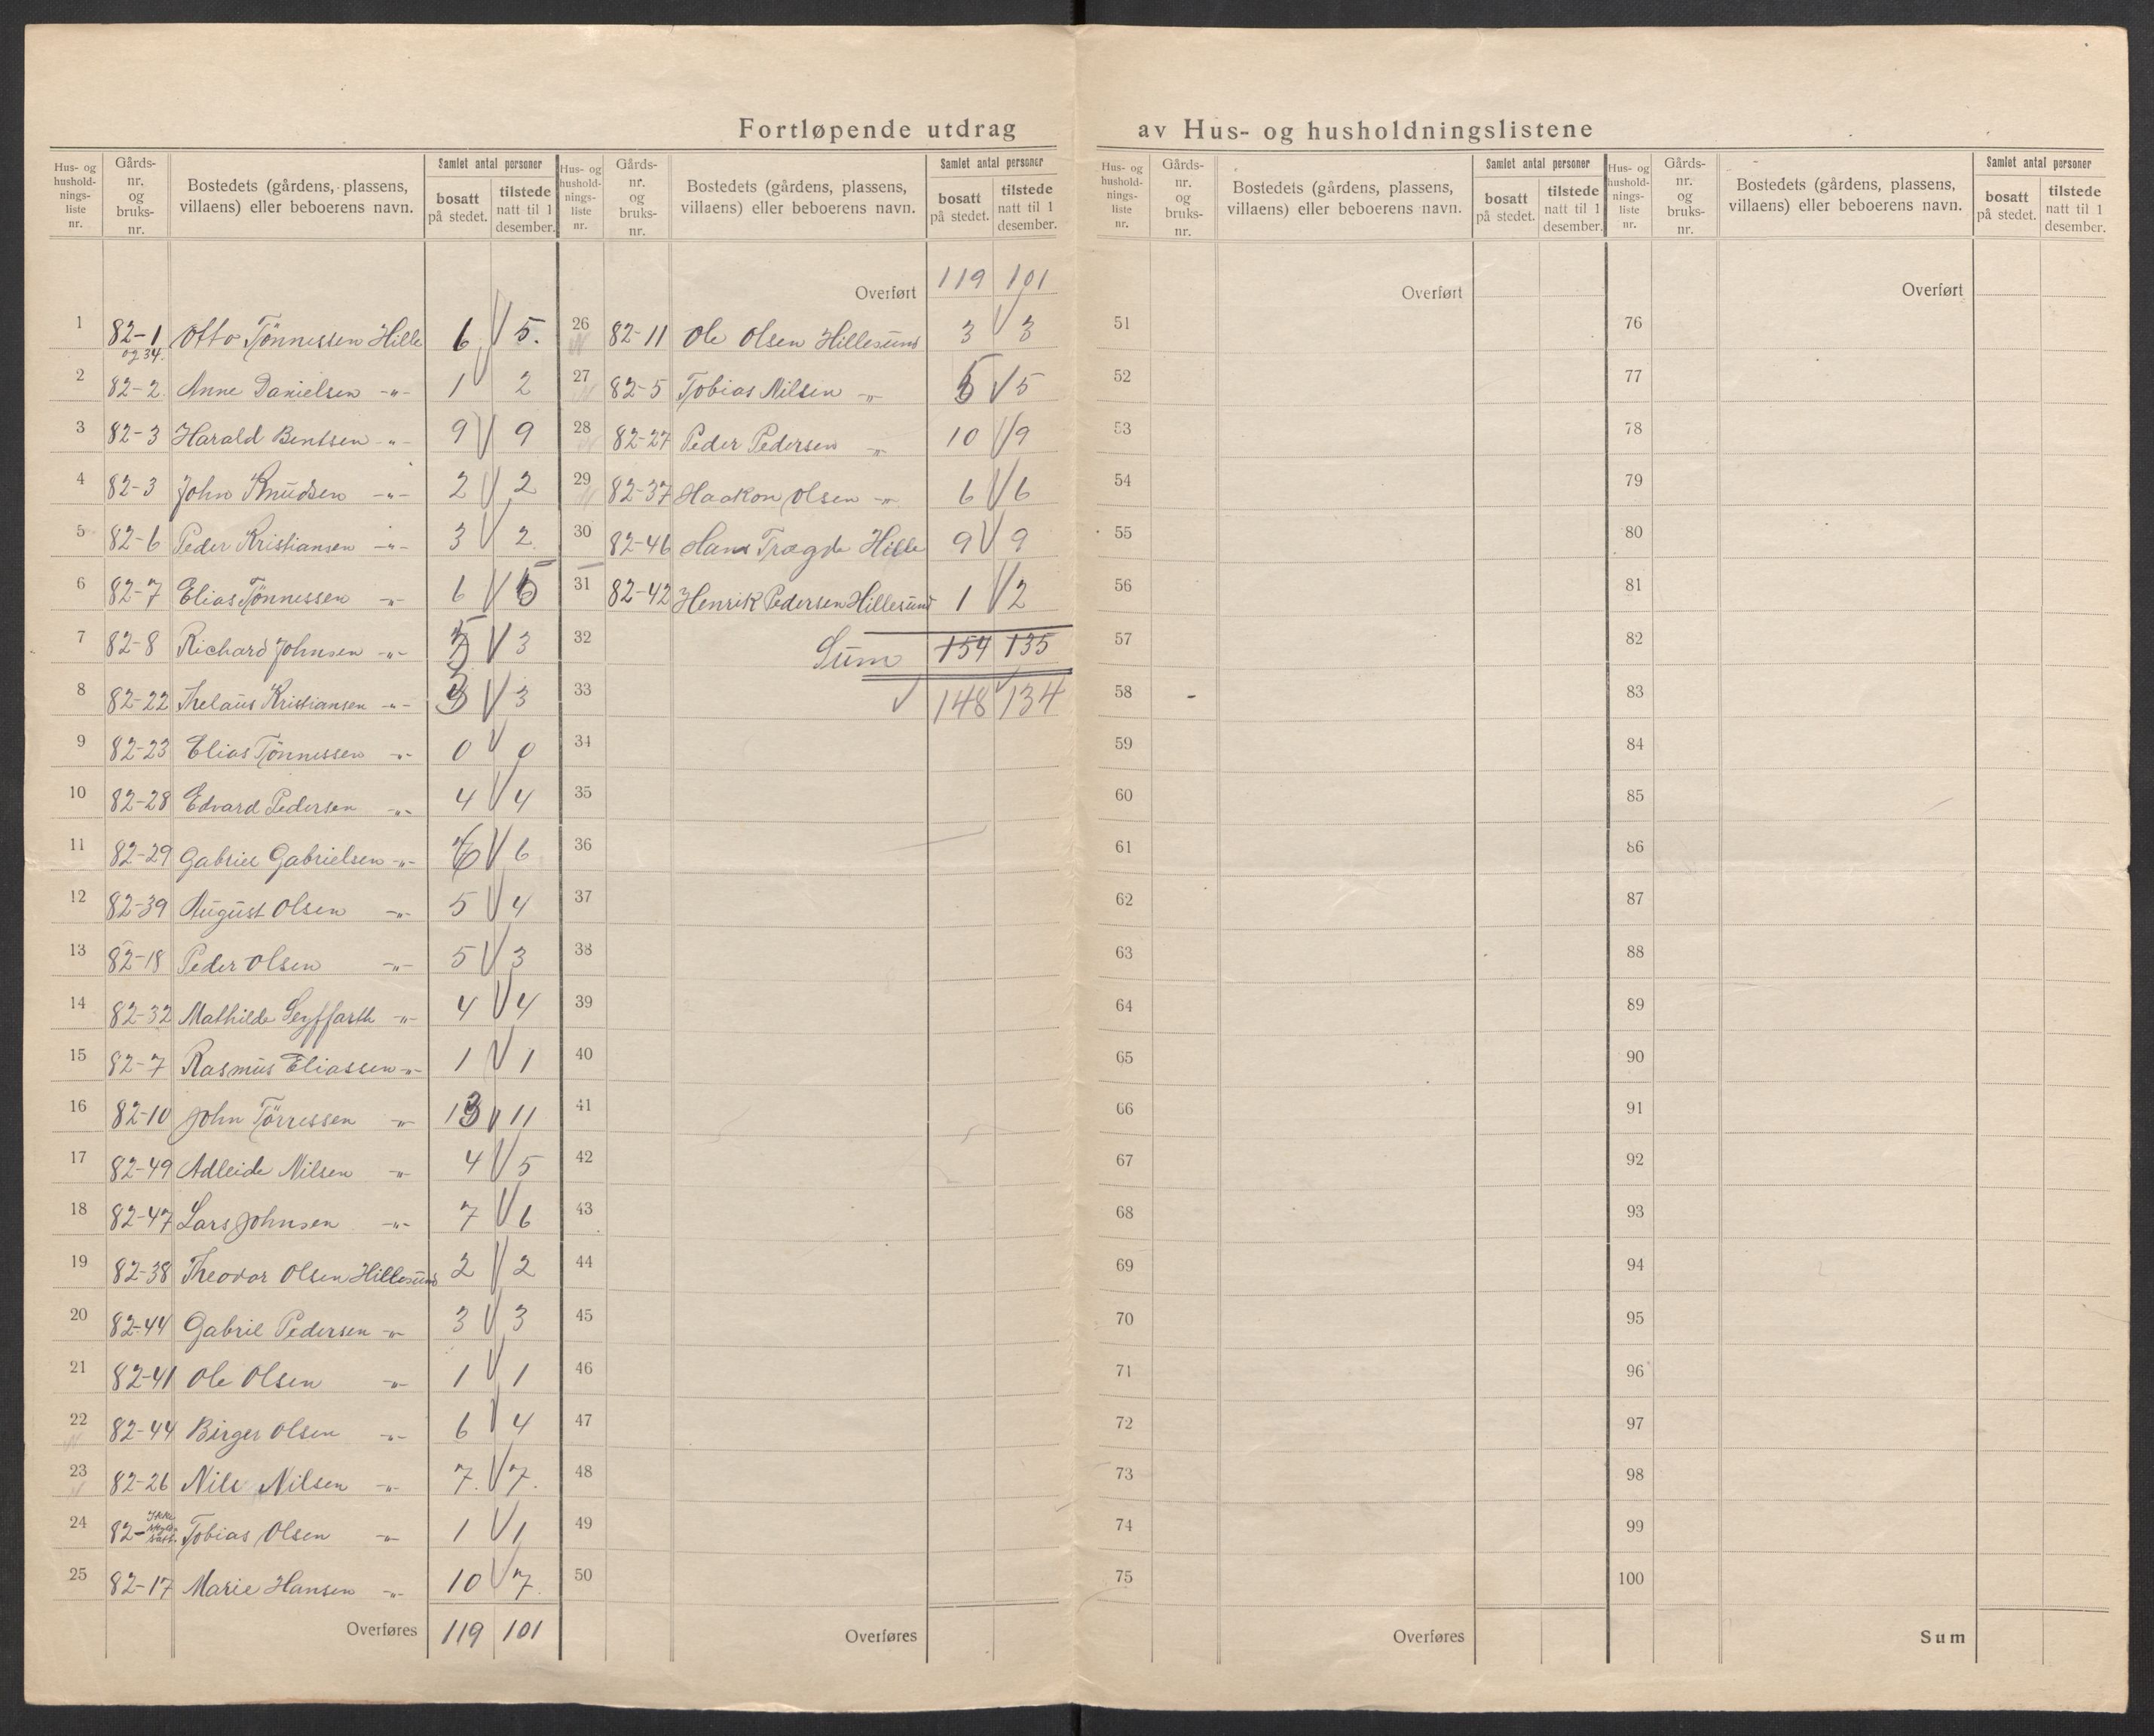 Fortløpende utdrag av Hus- og husholdningslistene
Hus- og hushold-nings-liste nr. | Gårds-nr. og bruks-nr. | Bostedets (gårdens, plassens, villaens) eller beboerens navn. | Samlet antal personer | bosatt på stedet. | tilstede natt til 1 desember.
1 82-1 og 34. Otto Tönnessen Hille 6 5.
2 82-2. Anne Danielsen -"- 1 2
3 82-3 Harald Bentsen -"- 9 9
4 82-3 John Knudsen -"- 2 2
5 82-6 Peder Kristiansen -"- 3 2
6 82-7 Elias Tönnessen -"- 6 5
7 82-8 Richard Johnsen -"- 5 3
8 82-22 Thelaus Kristiansen -"- 3 3
9 82-23 Elias Tönnessen -"- 0 0
10 82-28 Edvard Pedersen -"- 4 4
11 82-29 Gabriel Gabrielsen -"- 6 6
12 82-39 August Olsen -"- 5 4
13 82-18 Peder Olsen -"- 5 3
14 82-32 Mathilde Seyffarth -"- 4 4
15 82-7 Rasmus Eliassen -"- 1 1
16 82-10 John Törressen -"- 13 11
17 82-49 Adleide Nilsen -"- 4 5
18 82-47 Lars Johnsen -"- 7 6
19 82-38 Theodor Olsen Hillesund 2 2
20 82-44 Gabriel Pedersen -"- 3 3
21 82-41 Ole Olsen -"- 1 1
22 82-44 Birger Olsen -"- 6 4
23 82-26 Nils Nilsen -"- 7. 7.
24 82- Ikke skyldsatt. Tobias Olsen -"- 1 1
25 82-17 Marie Hansen -"- 10 7.
Overføres 119 101
Hus- og hushold-nings-liste nr. | Gårds-nr. og bruks-nr. | Bostedets (gårdens, plassens, villaens) eller beboerens navn. | Samlet antal personer | bosatt på stedet. | tilstede natt til 1 desember.
Overført 119 101
26 82-11 Ole Olsen Hillesund 3 3
27 82-5 Tobias Nilsen -"- 5 5
28 82-27 Peder Pedersen -"- 10 9
29 82-37 Haakon Olsen -"- 6 6
30 82-46 Hans Trægde Hille 9 9
31 82-42 Henrik Pedersen Hillesund 1 2
32 Sum 154 135
33 148 134
34
35
36
37
38
39
40
41
42
43
44
45
46
47
48
49
50
Overføres
Hus- og hushold-nings-liste nr. | Gårds-nr. og bruks-nr. | Bostedets (gårdens, plassens, villaens) eller beboerens navn. | Samlet antal personer | bosatt på stedet. | tilstede natt til 1 desember.
Overført
51
52
53
54
55
56
57
58
59
60
61
62
63
64
65
66
67
68
69
70
71
72
73
74
75
Overføres
Hus- og hushold-nings-liste nr. | Gårds-nr. og bruks-nr. | Bostedets (gårdens, plassens, villaens) eller beboerens navn. | Samlet antal personer | bosatt på stedet. | tilstede natt til 1 desember.
Overført
76
77
78
79
80
81
82
83
84
85
86
87
88
89
90
91
92
93
94
95
96
97
98
99
100
Sum